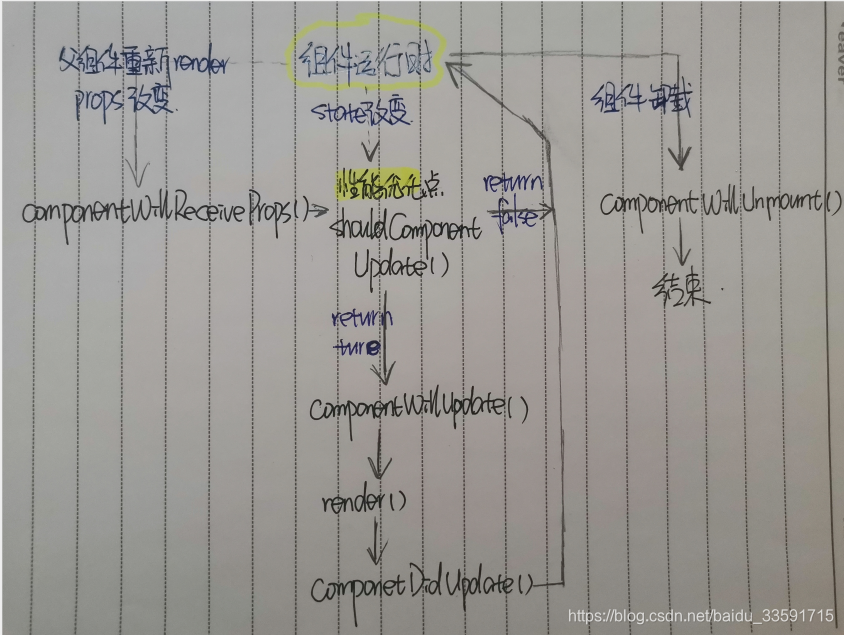 父组件重新render
props改变
组件运行时
state改变
组件卸载
componentWillReceiveProps()
性能优化点
shouldComponent
Update()
return
false
componentWillUnmount()
结束
return
ture
componentWillUpdate()
render()
componetDidUpdate()
https://blog.csdn.net/baidu_33591715